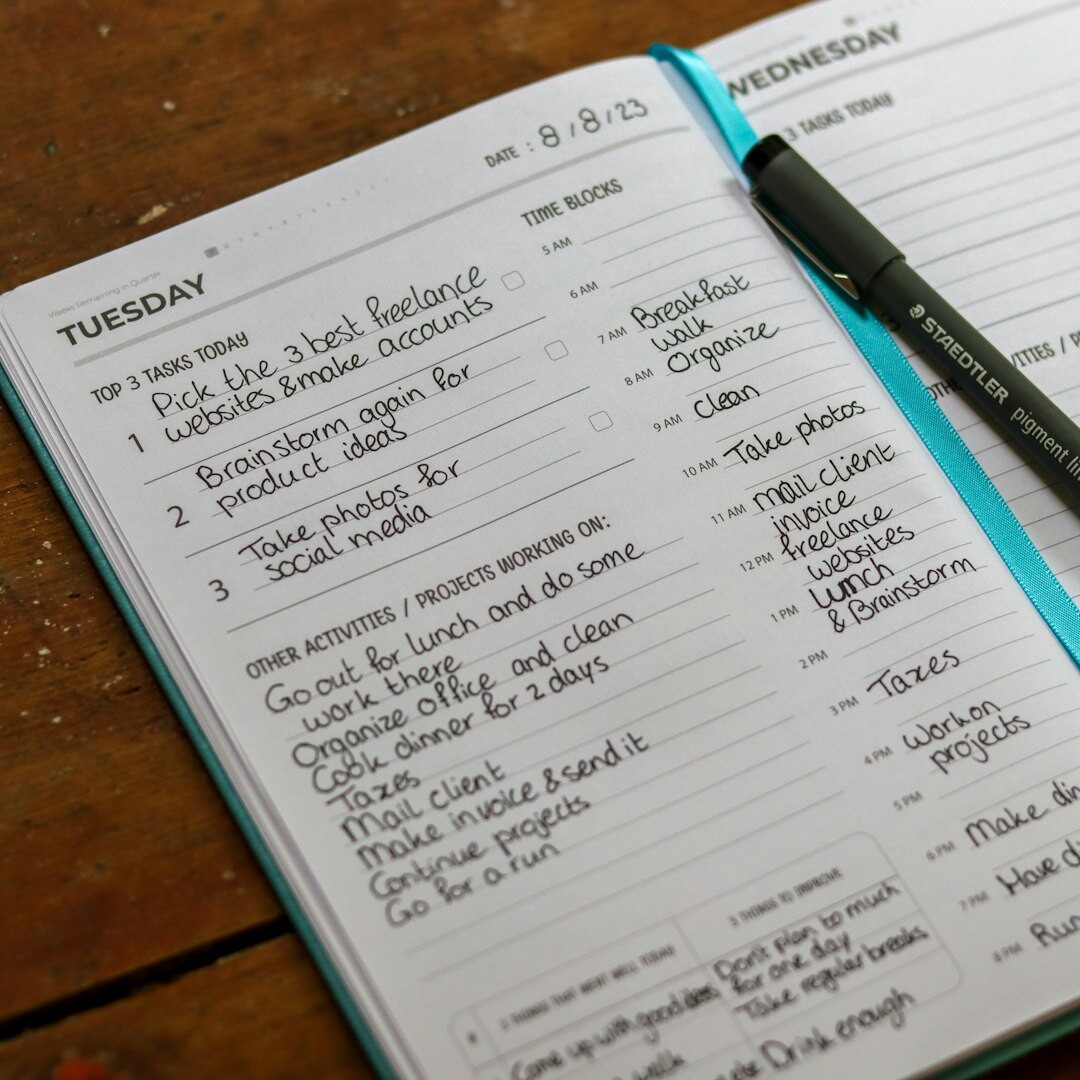 Weeks Remaining in Quarter
TUESDAY
DATE : 8 / 8 / 23
TOP 3 TASKS TODAY
1 Pick the 3 best freelance
websites & make accounts
2 Brainstorm again for
product ideas
3 Take photos for
social media
OTHER ACTIVITIES / PROJECTS WORKING ON:
Go out for lunch and do some
work there
Organize office and clean
Cook dinner for 2 days
Taxes
Mail client
Make invoice & send it
Continue projects
Go for a run
TIME BLOCKS
5 AM
6 AM
7 AM Breakfast
walk
8 AM Organize
9 AM Clean
10 AM Take photos
11 AM mail client
invoice
12 PM freelance
websites
1 PM lunch
& Brainstorm
2 PM
3 PM Taxes
4 PM Work on
projects
5 PM
6 PM Make din
7 PM Have di
8 PM Run
3 THINGS THAT WENT WELL TODAY
Came up with good
walk
3 THINGS TO IMPROVE
Don't plan to much
for one day
Take regular breaks
Drink enough
WEDNESDAY
3 TASKS TODAY
OTHE
VITIES / P
STAEDTLER
pigment lin